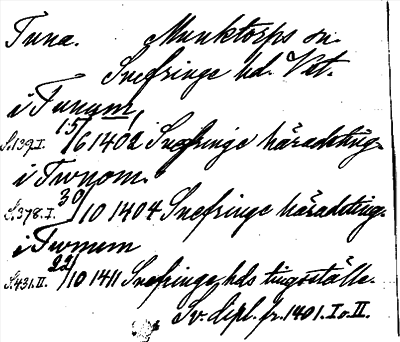 Tuna. Munktorps sn.
Snefringe hd. Vstm.
i Tunum,
S.139.I. 15/6 1402 Snefringe häradsting.
i Twnom.
S.378.I. 30/10 1404 Snefringe häradsting.
i Twnum
S.431.II. 22/10 1411 Snefringe hds tingsställe.
Sv. dipl. fr. 1401. I o. II.